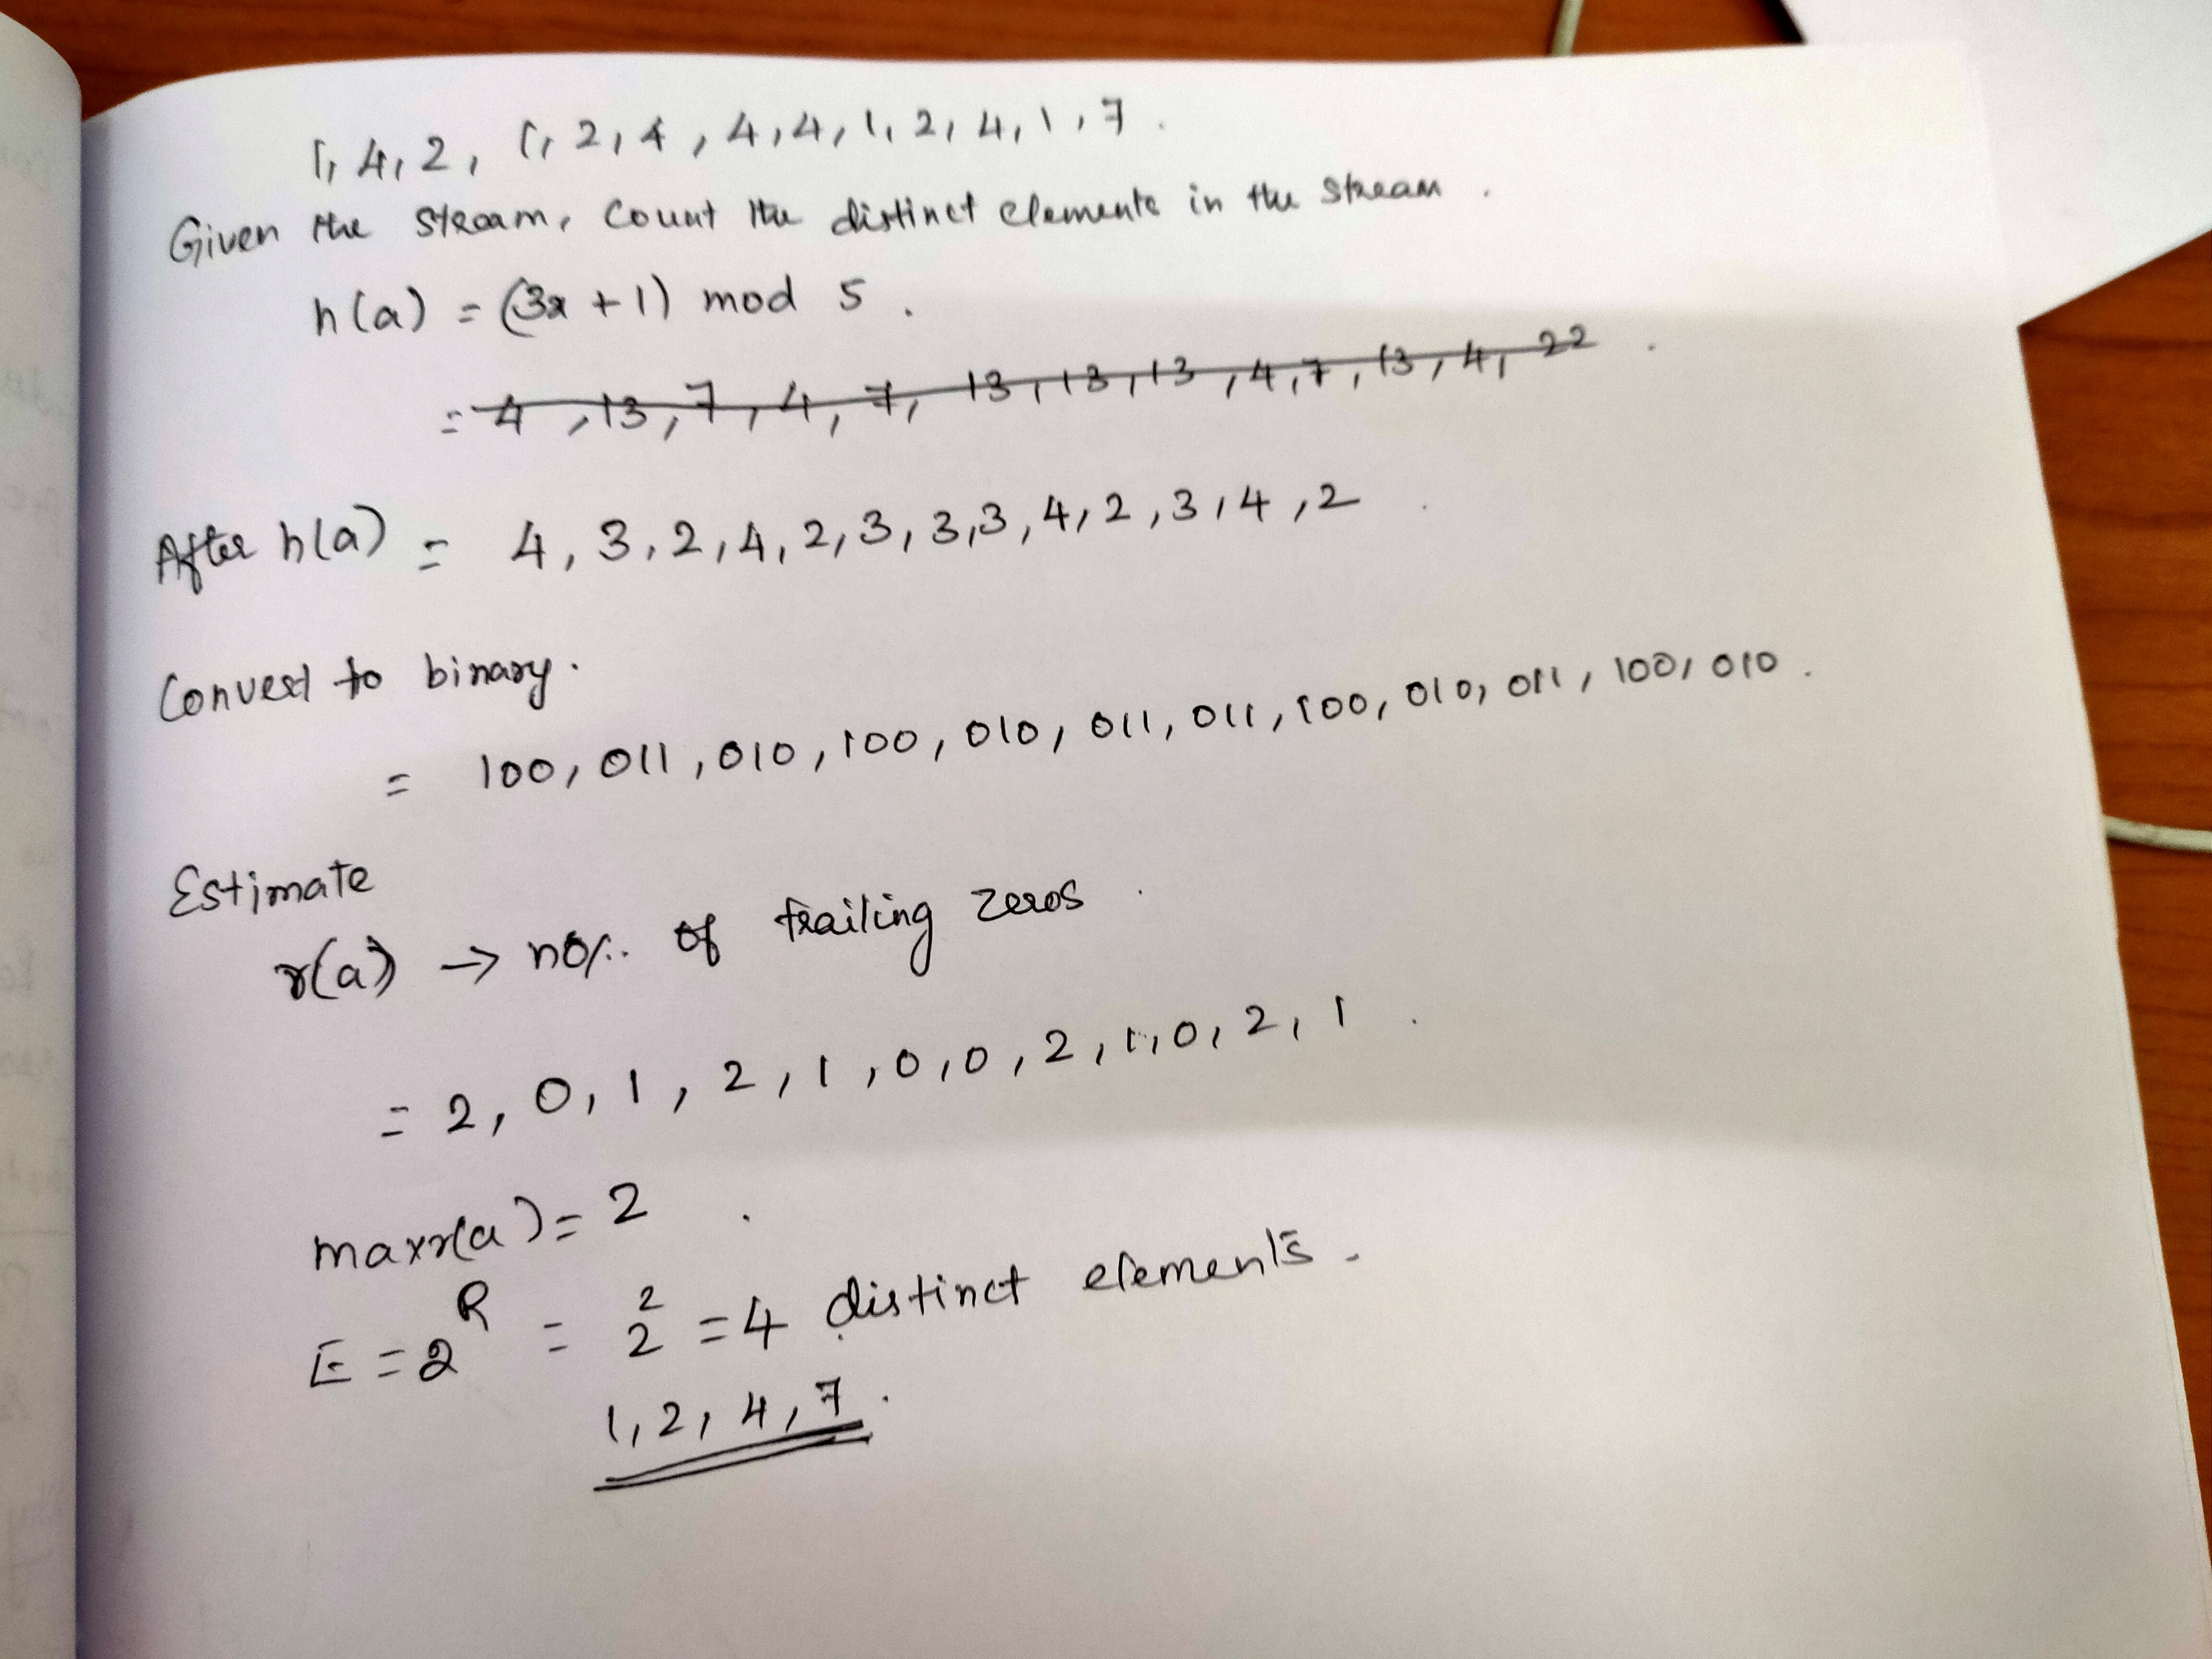 1, 4, 2, 1, 2, 4, 4, 4, 1, 2, 4, 1, 7.
Given the stream, Count the distinct elements in the stream.
h(a) = (3x + 1) mod 5.
= 4, 13, 7, 4, 7, 13, 13, 13, 4, 7, 13, 4, 22.
After h(a) = 4, 3, 2, 4, 2, 3, 3, 3, 4, 2, 3, 4, 2
Convert to binary.
= 100, 011, 010, 100, 010, 011, 011, 100, 010, 011, 100, 010.
Estimate
r(a) → no/.. of trailing zeros.
= 2, 0, 1, 2, 1, 0, 0, 2, 1, 0, 2, 1.
max r(a) = 2.
E = 2^R = 2^2 = 4 distinct elements.
1, 2, 4, 7.